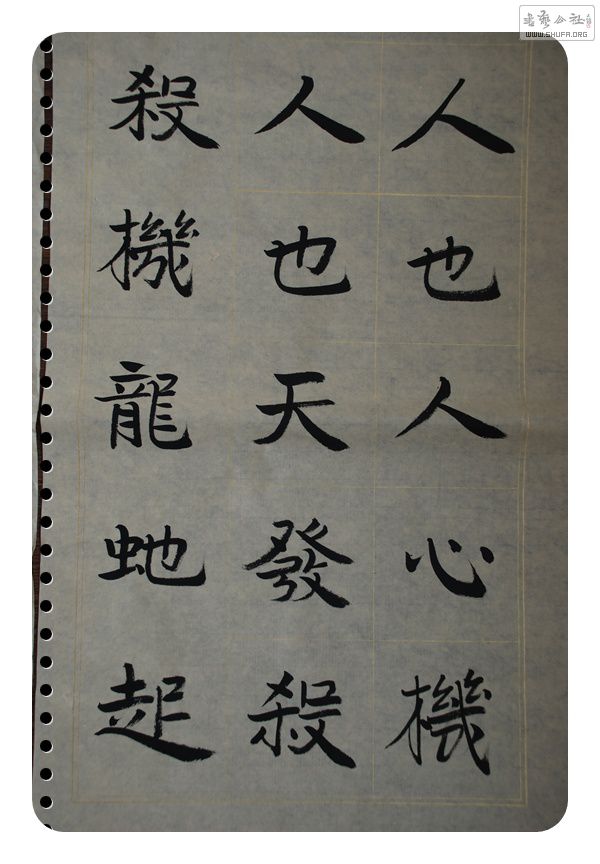 人也人心機
人也天發殺
殺機龍虵起
书艺公社
WWW.SHUFA.ORG